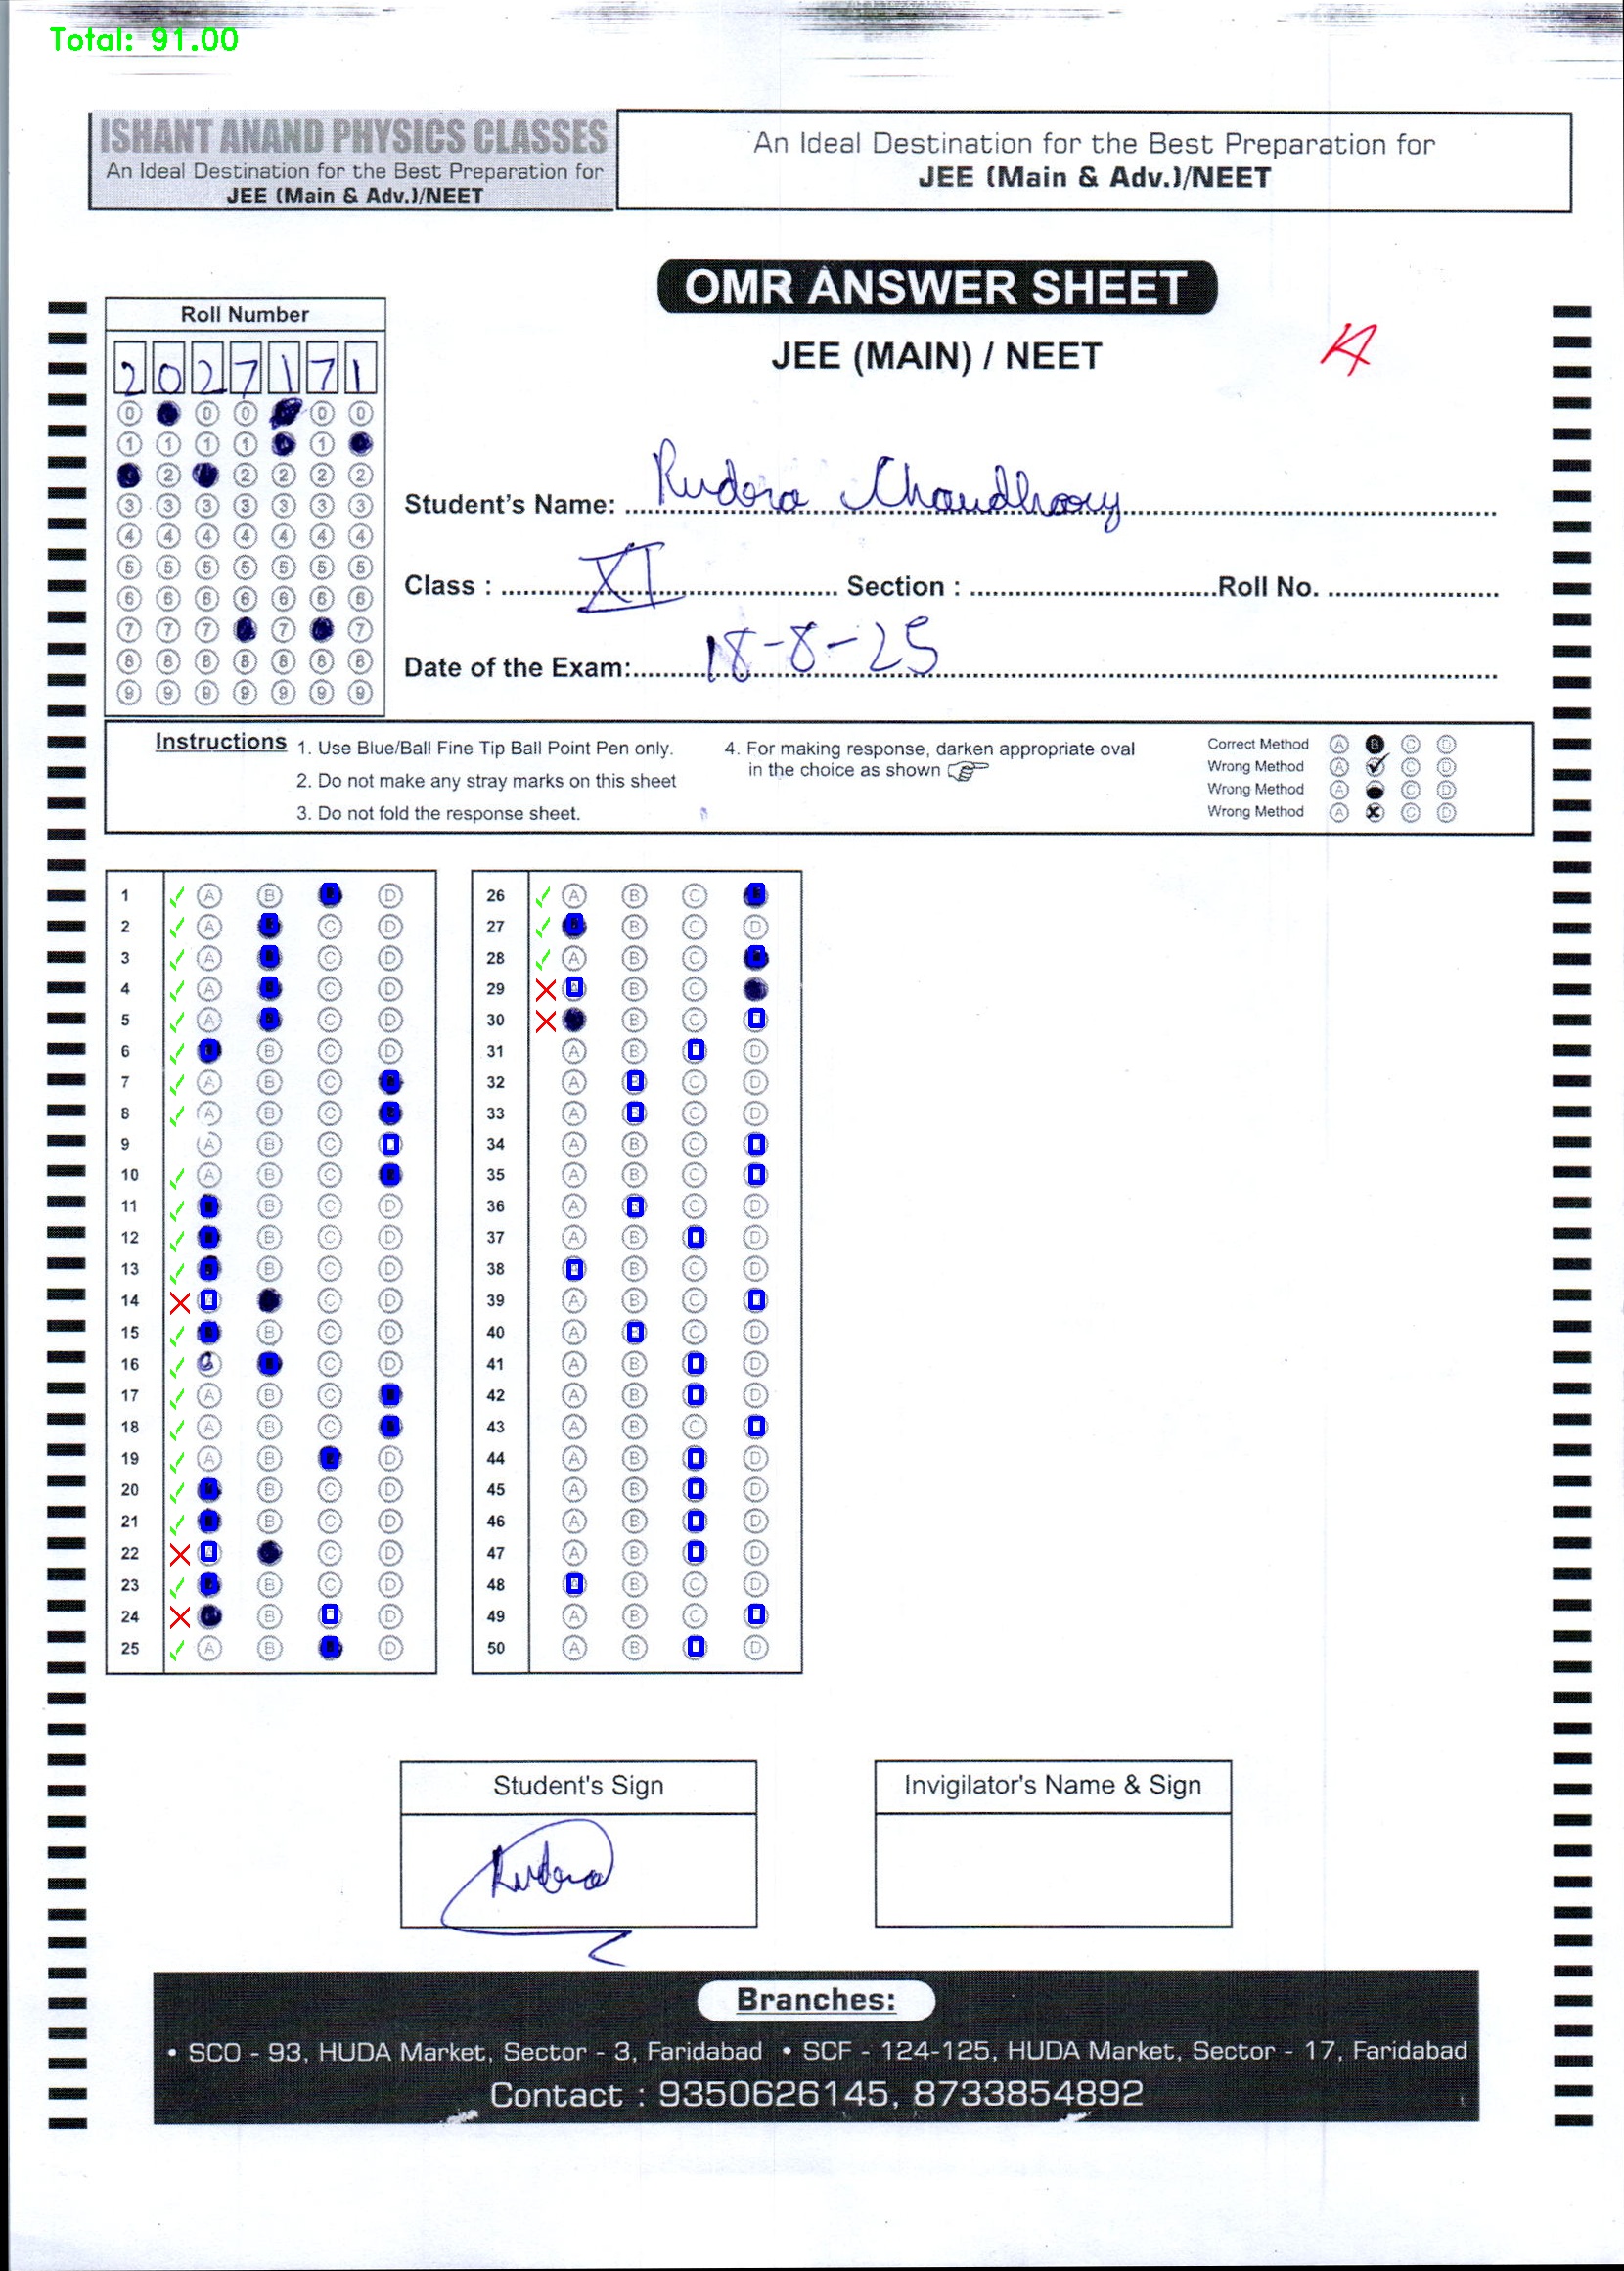 Total: 91.00
ISHANT ANAND PHYSICS CLASSES
An Ideal Destination for the Best Preparation for
JEE (Main & Adv.)/NEET
An Ideal Destination for the Best Preparation for
JEE (Main & Adv.)/NEET
OMR ANSWER SHEET
JEE (MAIN) / NEET
Roll Number
2 0 2 7 1 7 1
0 0 0 0 0
1 1 1 1 1
2 2 2 2 2
3 3 3 3 3 3 3
4 4 4 4 4 4 4
5 5 5 5 5 5 5
6 6 6 6 6 6 6
7 7 7 7 7
8 8 8 8 8 8 8
9 9 9 9 9 9 9
Student's Name: Rudora Chaudhary
Class : XI Section : Roll No.
Date of the Exam: 18-8-25
Instructions
1. Use Blue/Ball Fine Tip Ball Point Pen only.
2. Do not make any stray marks on this sheet
3. Do not fold the response sheet.
4. For making response, darken appropriate oval
in the choice as shown
Correct Method A B C D
Wrong Method A C D
Wrong Method A C D
Wrong Method A C D
1 A B D
2 A C D
3 A C D
4 A C D
5 A C D
6 B C D
7 A B C
8 A B C
9 A B C
10 A B C
11 B C D
12 B C D
13 B C D
14 C D
15 B C D
16 C D
17 A B C
18 A B C
19 A B D
20 B C D
21 B C D
22 C D
23 B C D
24 B D
25 A B D
26 A B C
27 B C D
28 A B C
29 B C
30 B C
31 A B D
32 A C D
33 A C D
34 A B C
35 A B C
36 A C D
37 A B D
38 B C D
39 A B C
40 A C D
41 A B D
42 A B D
43 A B C
44 A B D
45 A B D
46 A B D
47 A B D
48 B C D
49 A B C
50 A B D
Student's Sign
Rudora
Invigilator's Name & Sign
Branches:
• SCO - 93, HUDA Market, Sector - 3, Faridabad • SCF - 124-125, HUDA Market, Sector - 17, Faridabad
Contact : 9350626145, 8733854892